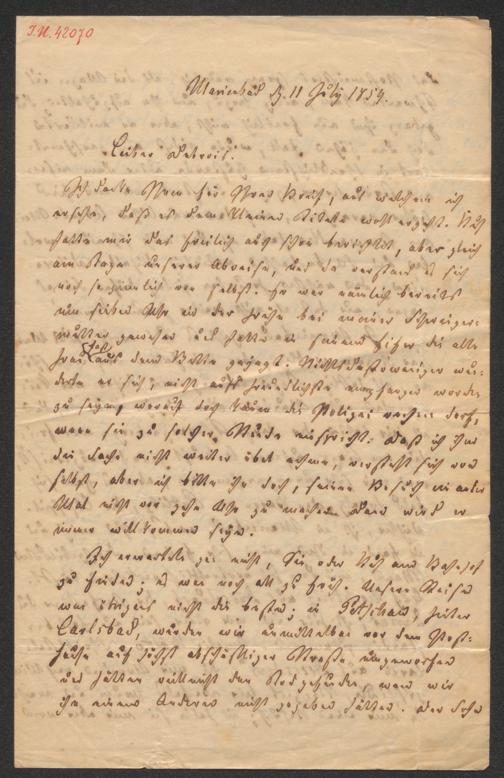 I.N. 42070
Marienbad d. 11 July 1854.
Lieber Debrois!
Ich danke Ihnen für Ihren Brief, aus welchem ich
ersehe, daß es dem kleinen wohl ergeht. Kuh
hatte mir das freilich auch schon berichtet, aber gleich
am Tage unserer Abreise, und da verstand es sich
noch so ziemlich von selbst. Er war nämlich bereits
um sieben Uhr in der Frühe bei meiner Schwieger-
mutter gewesen und hatte in seinem Eifer die alte
Frau fast aus dem Bette gejagt. Nichtsdestoweniger wun-
derte er sich, nicht aufs freundlichste empfangen worden
zu seyn, worauf doch kaum die Polizei rechnen darf,
wenn sie zu solcher Stunde einspricht. Daß ich ihm
die Sache nicht weiter übel nehme, versteht sich von
selbst, aber ich bitte ihn doch, seinen Besuch ein ander
Mal nicht vor zehn Uhr zu machen. Dann wird er
immer willkommen seyn.
Ich erwartete gar nicht, Sie oder Kuh am Bahnhof
zu finden; es war noch all zu früh. Unsere Reise
war übrigens nicht die beste; in Petschau, hinter
Carlsbad, wurden wir unmittelbar vor dem Post-
hause auf höchst abschüssiger Straße umgeworfen
und hätten vielleicht den Tod gefunden, wenn wir
ihn einem Anderen nicht gegeben hätten. Der Sohn